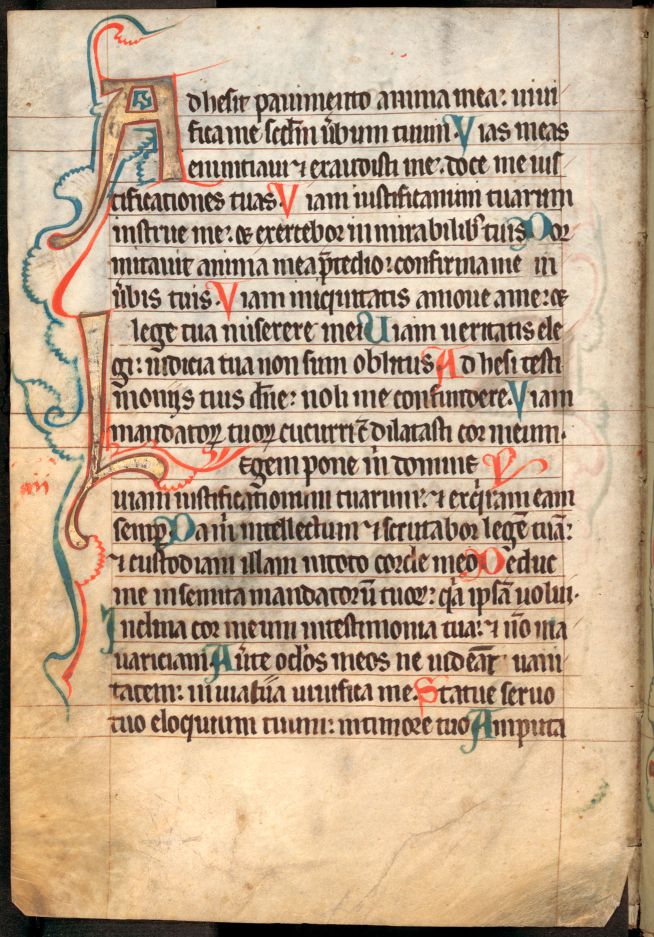 Adhesit pauimento anima mea: uiui
fica me scdm ūbum tuum. Vias meas
enuntiaui ⁊ exaudisti me. doce me ius
tificationes tuas. Viam iustificationum tuarum
instrue me: et exercebor in mirabilib; tuis Dor
mitauit anima mea p̄ tedio: confirma me in
ūbis tuis. Viam iniquitatis amoue a me: et
lege tua miserere mei Uiam ueritatis ele
gi: iudicia tua non sum oblitus. Adhesi testi
moniis tuis dñe: noli me confundere. Viam
mandatoꝝ tuoꝝ cucurri: c̄ dilatasti cor meum.
Legem pone m̄ domine
uiam iustificationum tuarum: ⁊ exq̇ram eam
semp̄. Da m̄ intellectum ⁊ scrutabor legē tuā:
⁊ custodiam illam in toto corde meo Deduc
me in semita mandatorū tuoꝝ: q̇a ipsā uolui.
Inclina cor meum in testimonia tua: ⁊ nō in a
uariciam. Aūte oclos meos ne uideāt uani
tatem: in uia tua uiuifica me. Statue seruo
tuo eloquium tuum: in timore tuo Amputa